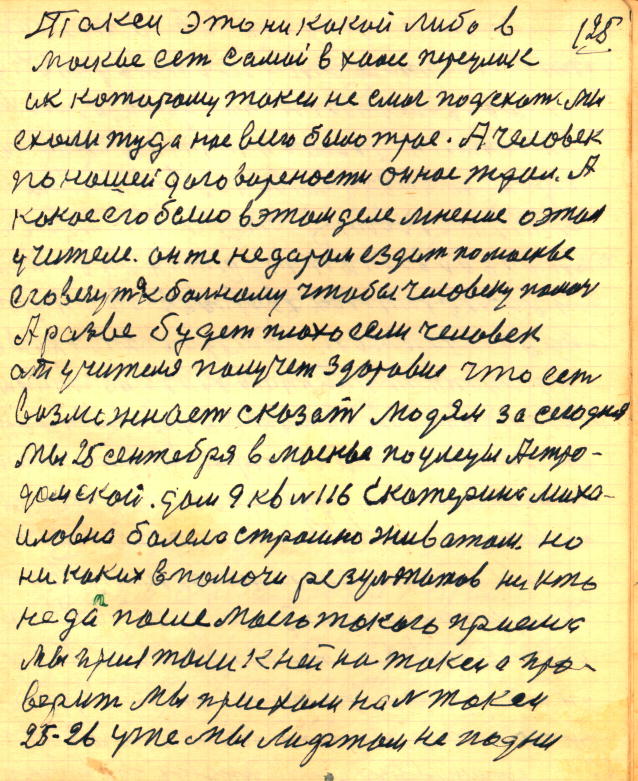 Такси это никакой либо в 128
москве сет самой в хане переулак
ик которому такси не смог подехат. Мы
ехали туда нас всего было трое. А человек
по нашей договарености он нас ждал. А
какое его было в этом деле мнение о этом
учителе. он те не даром ездит по москве
его везут к болному чтобы человеку помоч
А разве будет плохо если человек
от учителя получет здоровие что ест
возможност сказат людям за сегодня
Мы 25 сентября в москве по улецы Астро-
домской. дом 9 кв N 116 Екатерина миха-
иловна болела страшно животом. но
ни каких в помочи результатов ни кто
не дал после моего такого приема
мы приятали к ней на такси а про-
верит мы приехали на N такси
25-26 уже мы лифтом не подни